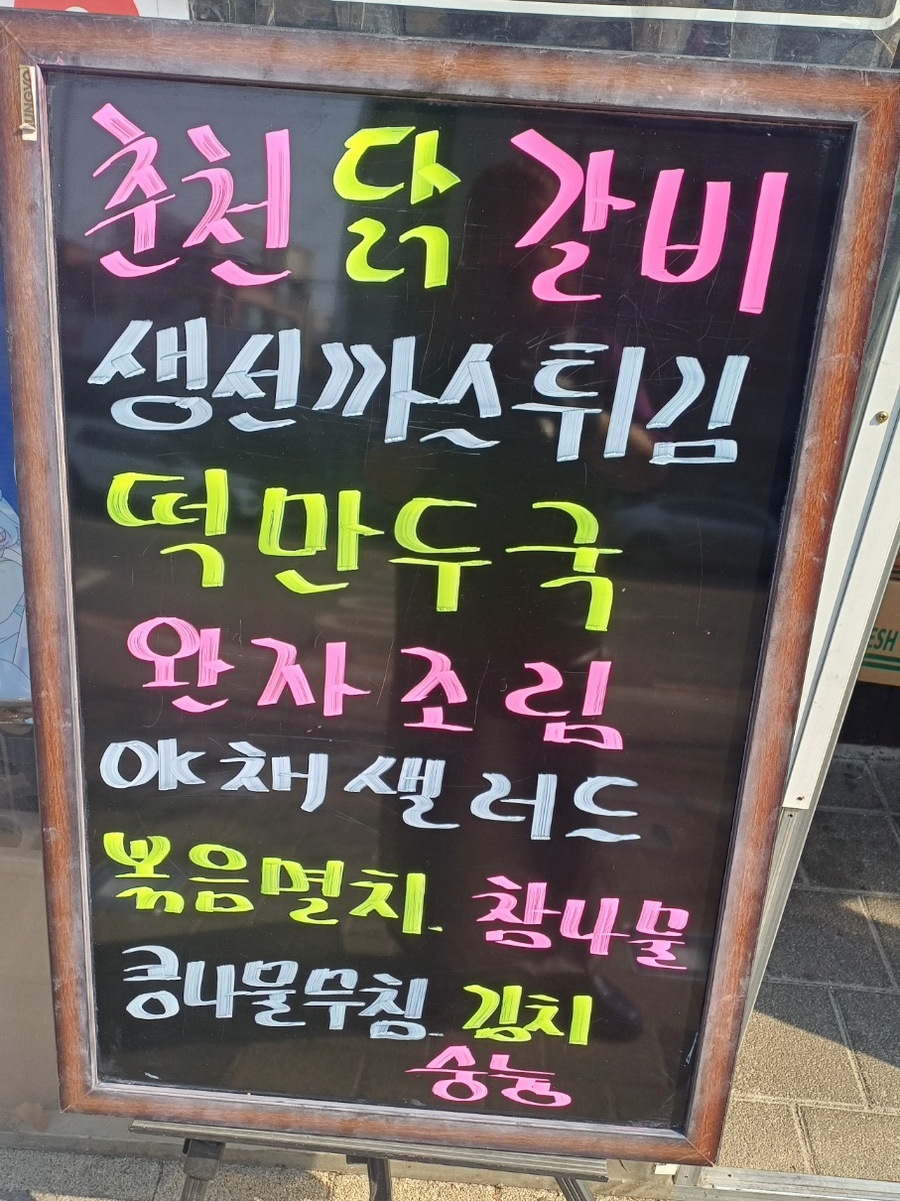 춘천 닭 갈비
생선까스튀김
떡만두국
완자조림
ok 채샐러드
볶음멸치. 참나물
콩나물무침. 김치
숭늉
MUNGYO
ESH